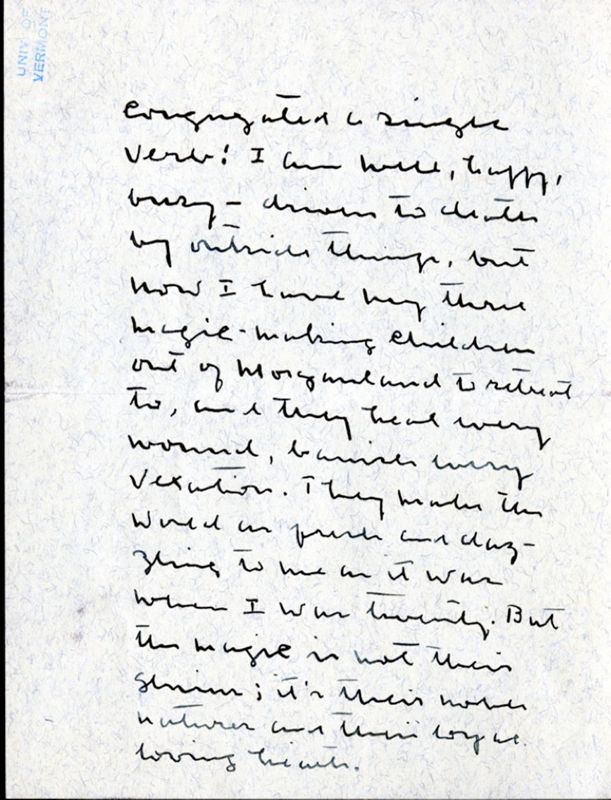 UNIV OF
VERMONT
conjugated a single
verb! I am well, happy,
busy – driven to death
by outside things, but
now I have my three
magic-making children
out of Morganland to retreat
to, and they heal every
wound, banish every
vexation. They make the
world as fresh and daz-
zling to me as it was
when I was twenty. But
the magic is not their
genius; it's their noble
natures and their loyal
loving hearts.